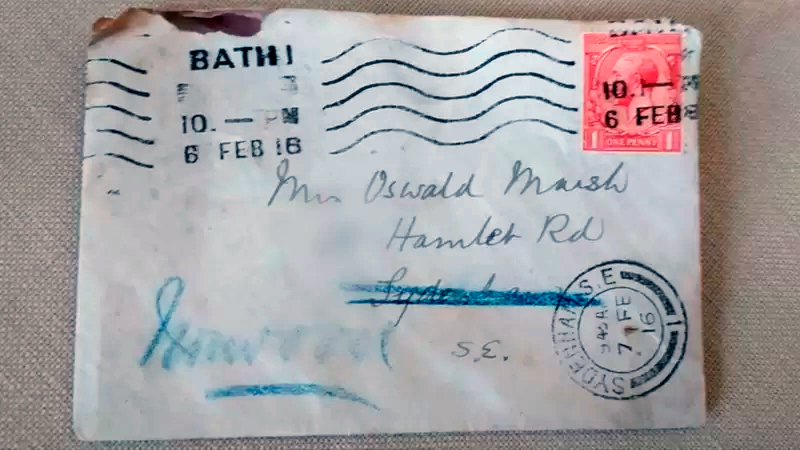 BATH I
10. — PM
6 FEB 16
10. —
6 FEB
1 ONE PENNY 1
Mrs Oswald Marsh
Hamlet Rd
Sydenham
S.E.
Norwood
SYDENHAM S.E
7 FE
16
1